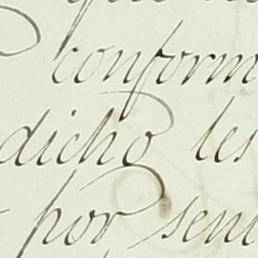 conform
dicho les
por sen